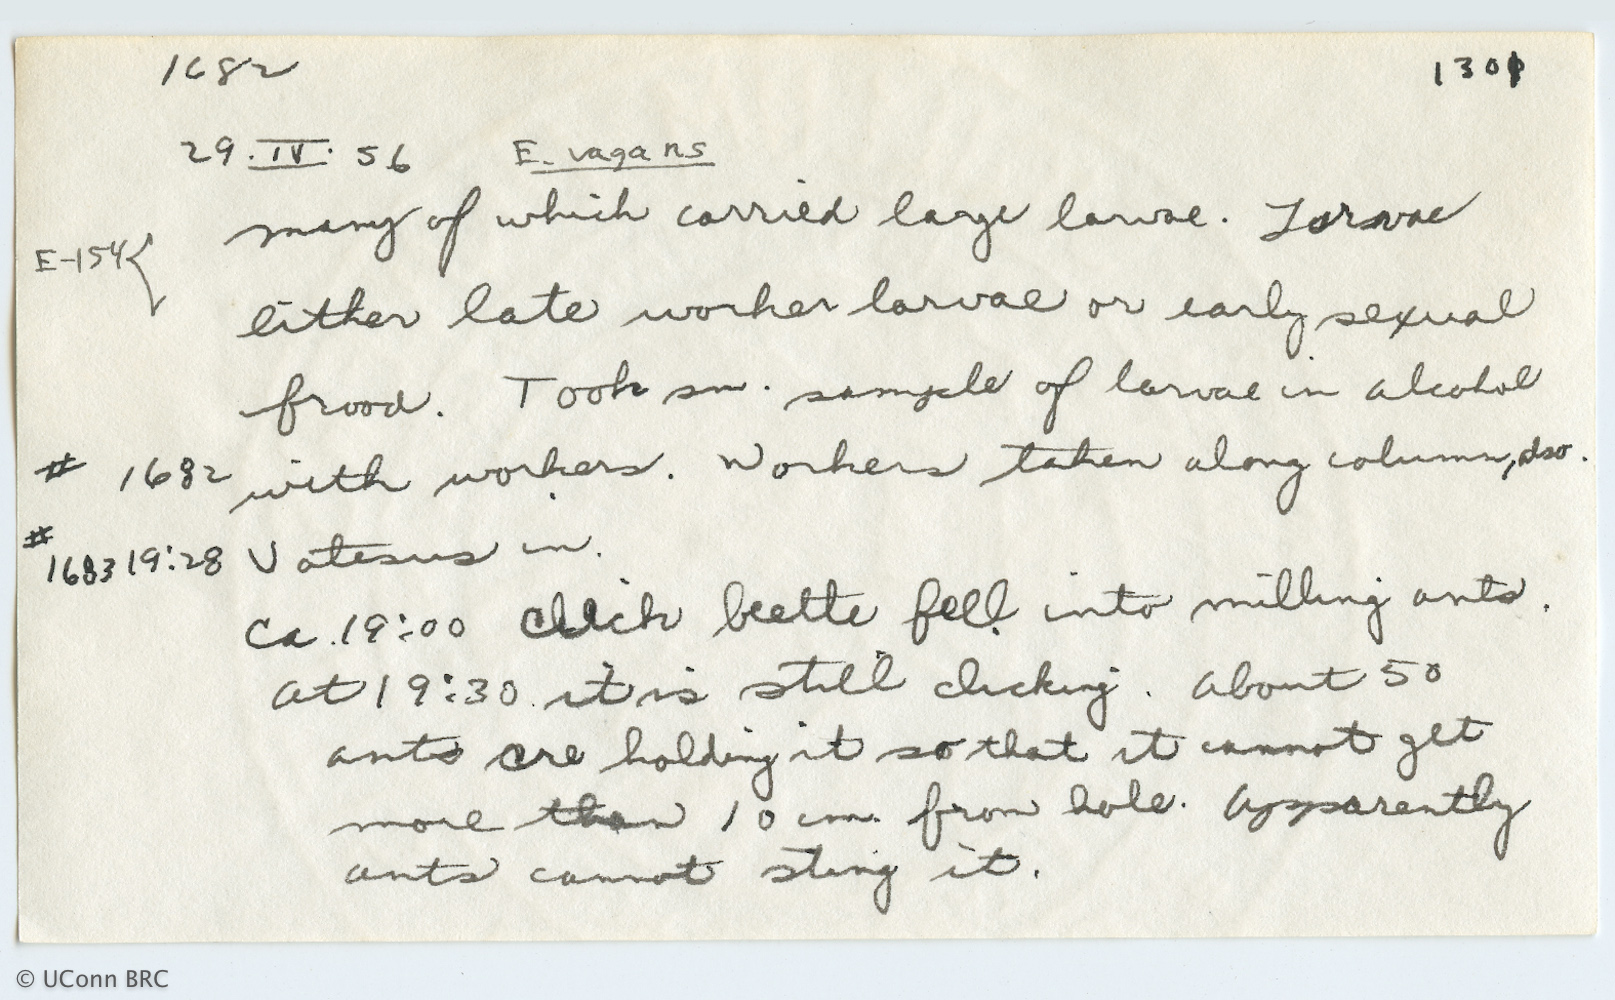 1682 1301
29·IV·56 E. vagans
E-154 many of which carried large larvae. Larvae
either late worker larvae or early sexual
brood. Took sm. sample of larvae in alcohol
# 1682 with workers. Workers taken along column, also.
# 1683 19:28 Vatesus in.
Ca. 19:00 click beetle fell into milling ants.
At 19:30 it is still clicking. About 50
ants are holding it so that it cannot get
more than 10 cm. from hole. Apparently
ants cannot sting it.
© UConn BRC